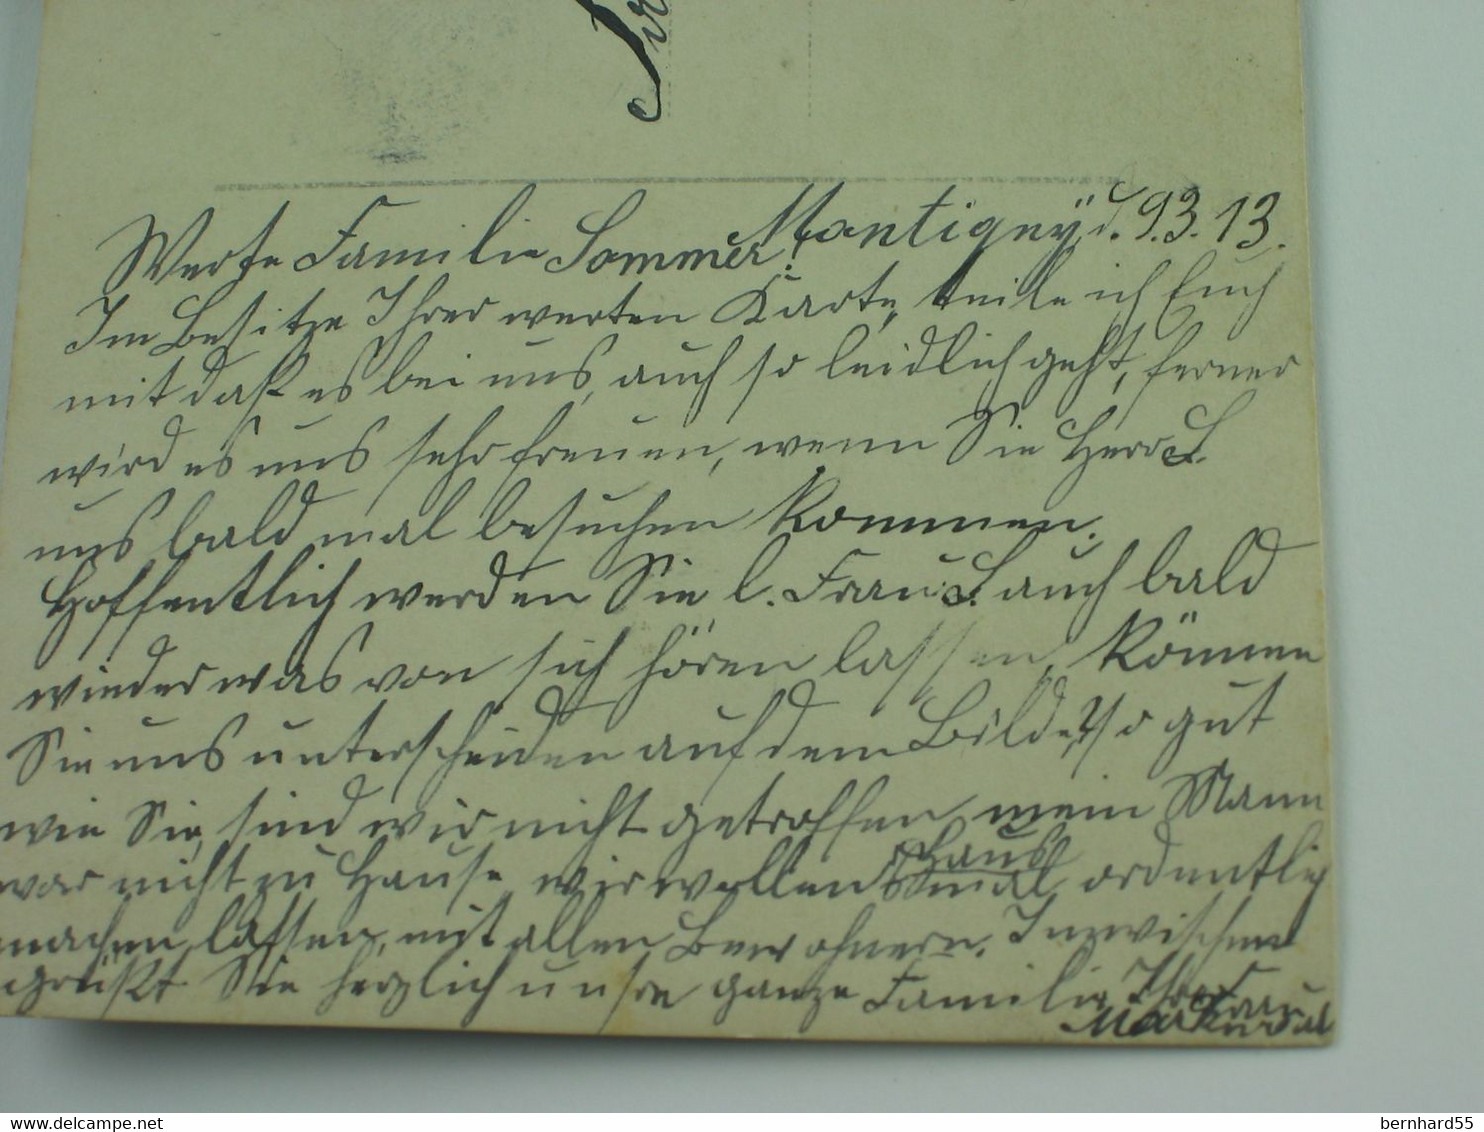 Montigny, d. 9.3.13.
Werte Familie Sommer!
Im Besitze Ihrer werten Karte, teile ich Euch
mit daß es bei uns, auch so leidlich geht, ferner
wird es uns sehr freuen, wenn Sie Herr S.
uns bald mal besuchen kommen.
Hoffentlich werden Sie l. Frau S. auch bald
wieder was von sich hören lassen, können
Sie uns unterscheiden auf dem Bilde? so gut
wie Sie, sind wir nicht getroffen mein Mann
war nicht zu Hause, wir wollen Haus mal ordentlich
machen lassen, mit allen Bewohnern. Inzwischen
grüßt Sie herzlich unsre ganze Familie Ihre
Frau
bernhard55